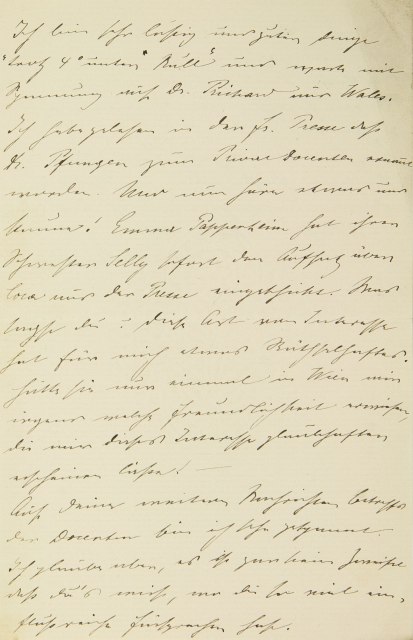 Ich bin sehr lustig und guter Dinge
trotz 4° unter "Null" und warte mit
Spannung auf Dr. Richard aus Wales.
Ich habe gelesen in der fr. Presse daß
Dr. Pfungen zum Privat Docenten ernannt
worden. Nur nun höre etwas und
staune! Emma Pappenheim hat ihrer
Schwester Selly sofort den Aufsatz über
Coca aus der Presse eingeschickt. Was
sagst du? Diese Art von Interesse
hat für mich etwas Räthselhaftes.
Hätte sie nur einmal in Wien mir
irgend welche Freundlichkeit erwiesen,
die mir dieses Interesse glaubhafter
erscheinen ließe! —
Auf Deine weiteren Nachrichten betreffs
der Docentur bin ich sehr gespannt.
Ich glaube aber, es ist gar kein Zweifel
daß Du's wirst, wo du so viel ein-
flußreiche Fürsprecher hast.